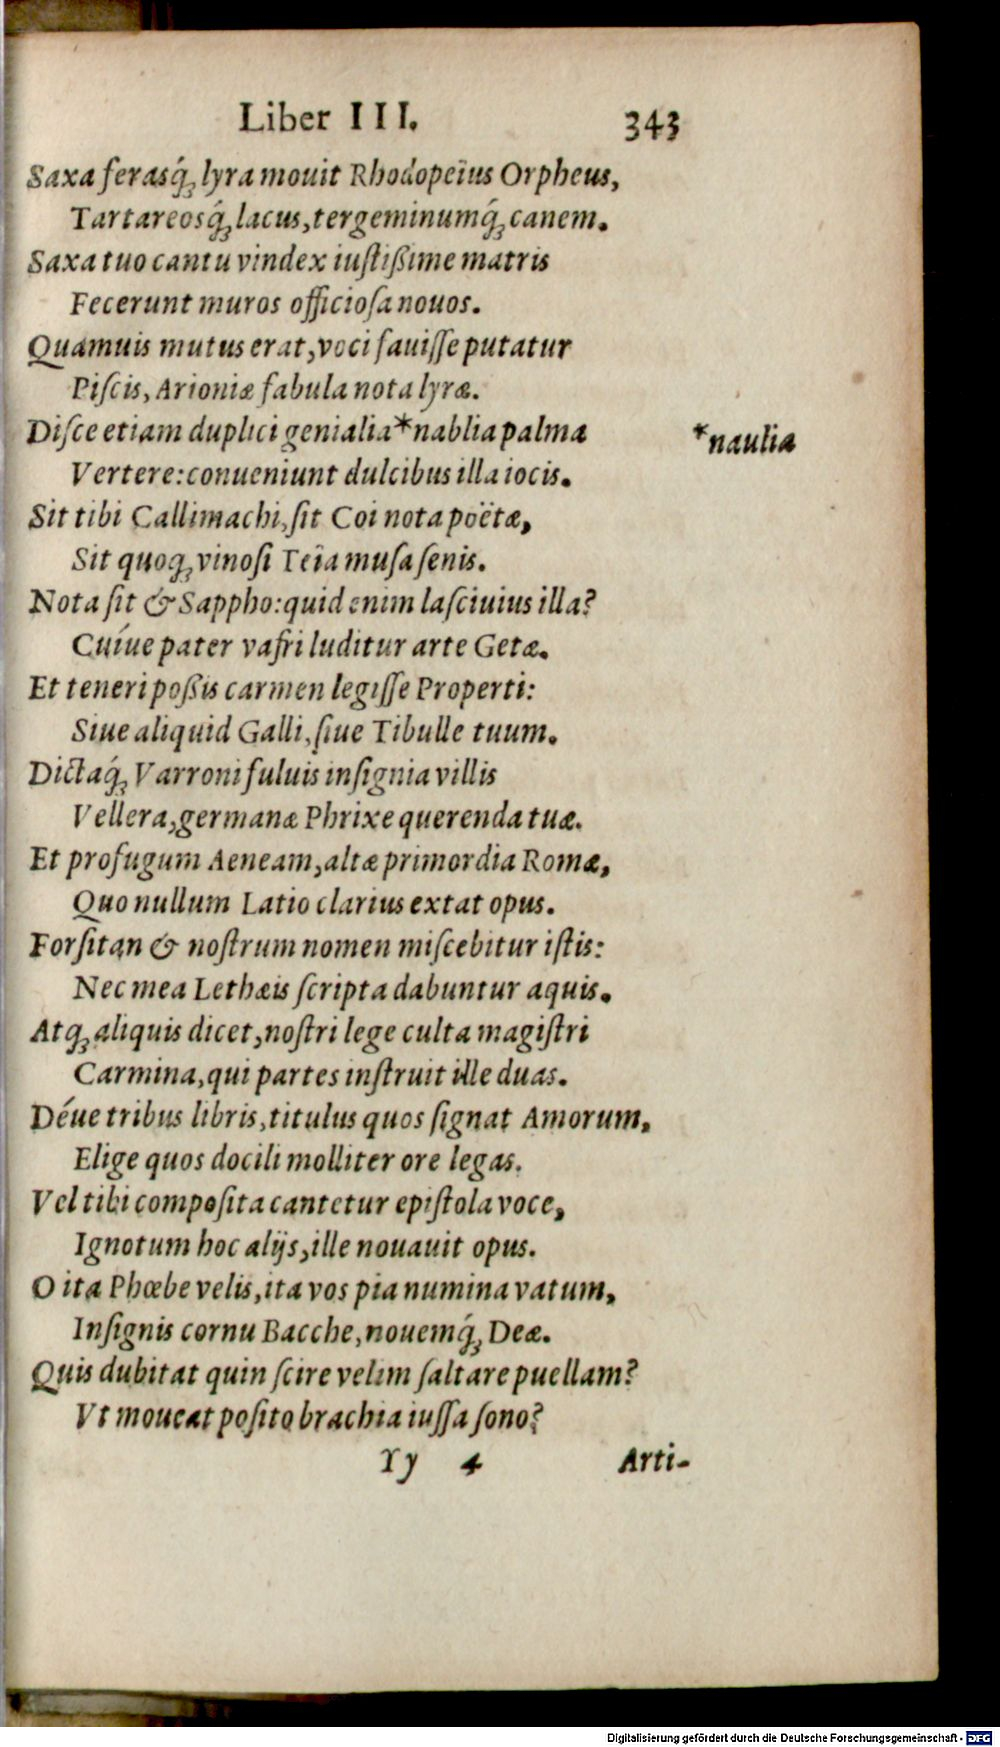 Liber III. 343
Saxa ferasq́ꝫ lyra mouit Rhodopeïus Orpheus,
Tartareosq́ꝫ lacus, tergeminumq́ꝫ canem.
Saxa tuo cantu vindex iuſtißime matris
Fecerunt muros officioſa nouos.
Quamuis mutus erat, voci fauiſſe putatur
Piſcis, Arioniæ fabula nota lyræ.
Diſce etiam duplici genialia*nablia palma *naulia
Vertere: conueniunt dulcibus illa iocis.
Sit tibi Callimachi, ſit Coi nota poëtæ,
Sit quoqꝫ vinoſi Teïa muſa ſenis.
Nota ſit & Sappho: quid enim laſciuius illa?
Cuíue pater vafri luditur arte Getæ.
Et teneri poßis carmen legiſſe Properti:
Siue aliquid Galli, ſiue Tibulle tuum.
Dictaq́ꝫ Varroni fuluis inſignia villis
Vellera, germanæ Phrixe querenda tuæ.
Et profugum Aeneam, altæ primordia Romæ,
Quo nullum Latio clarius extat opus.
Forſitan & noſtrum nomen miſcebitur iſtis:
Nec mea Lethæis ſcripta dabuntur aquis.
Atqꝫ aliquis dicet, noſtri lege culta magiſtri
Carmina, qui partes inſtruit ille duas.
Déue tribus libris, titulus quos ſignat Amorum,
Elige quos docili molliter ore legas.
Vel tibi compoſita cantetur epiſtola voce,
Ignotum hoc alijs, ille nouauit opus.
O ita Phœbe velis, ita vos pia numina vatum,
Inſignis cornu Bacche, nouemq́ꝫ Deæ.
Quis dubitat quin ſcire velim ſaltare puellam?
Vt moueat poſito brachia iuſſa ſono?
Yy 4 Arti-
Digitalisierung gefördert durch die Deutsche Forschungsgemeinschaft - DFG